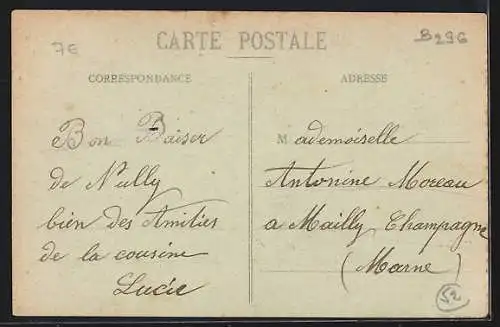 7E
B296
CARTE POSTALE
CORRESPONDANCE
ADRESSE
Bon Baiser
de Nully
bien des Amitiés
de la cousine
Lucie
Mademoiselle
Antonine Moreau
a Mailly Champagne
(Marne)
52